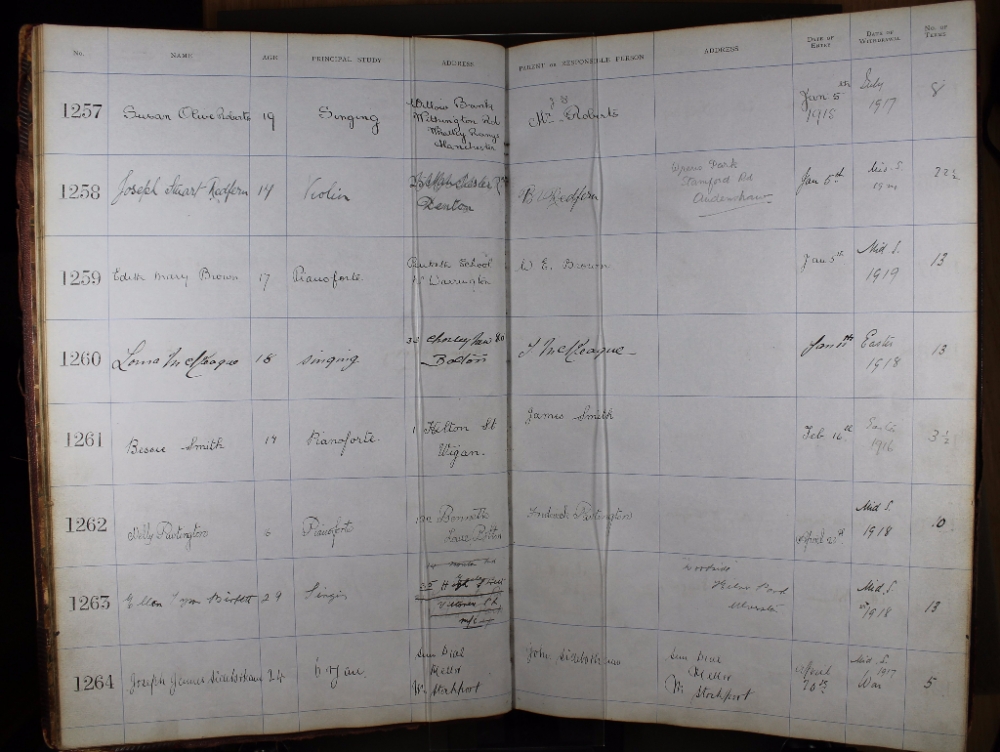 No. NAME AGE PRINCIPAL STUDY ADDRESS PARENT OR RESPONSIBLE PERSON ADDRESS DATE OF ENTRY DATE OF WITHDRAWAL NO. OF TERMS
1257 Susan Olive Roberts 19 Singing
Willow Bank
Withington Rd
Whalley Range
Manchester
Mr Roberts
Jan 5th
1915
July
1917
8
1258 Joseph Stuart Redfern 14 Violin
Denton
Redfern
Stamford Rd
Audenshaw
Jan 5th
22½
1259 Edith Mary Brown 17 Pianoforte
School
Nr Warrington
E. Brown
Jan 5th
Mid S.
1919
13
1260 Lorna McKeague 18 Singing
Chorley New Rd
Bolton
J McKeague
Jan 11th
Easter
1918
13
1261 Bessie Smith 17 Pianoforte
1 Hilton St
Wigan.
James Smith
Feb 16th
Easter
1916
3½
1262 Nelly Partington Pianoforte
Lane Bolton
Partington
April
Mid S.
1918
10
1263 Ellen 29
35 High Street
Victoria Pk
M/c
Road
Ulverston
Mid S.
1918
13
1264 Joseph James Sidebotham 24 Organ
Sun Dial
Mellor
Nr Stockport
John Sidebotham
Sun Dial
Mellor
Nr Stockport
April
20th
Mid S.
1917
War
5